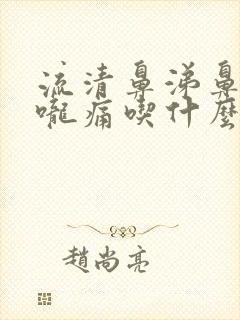 流清鼻涕鼻
嚨痛喫什麼
趙尚亮